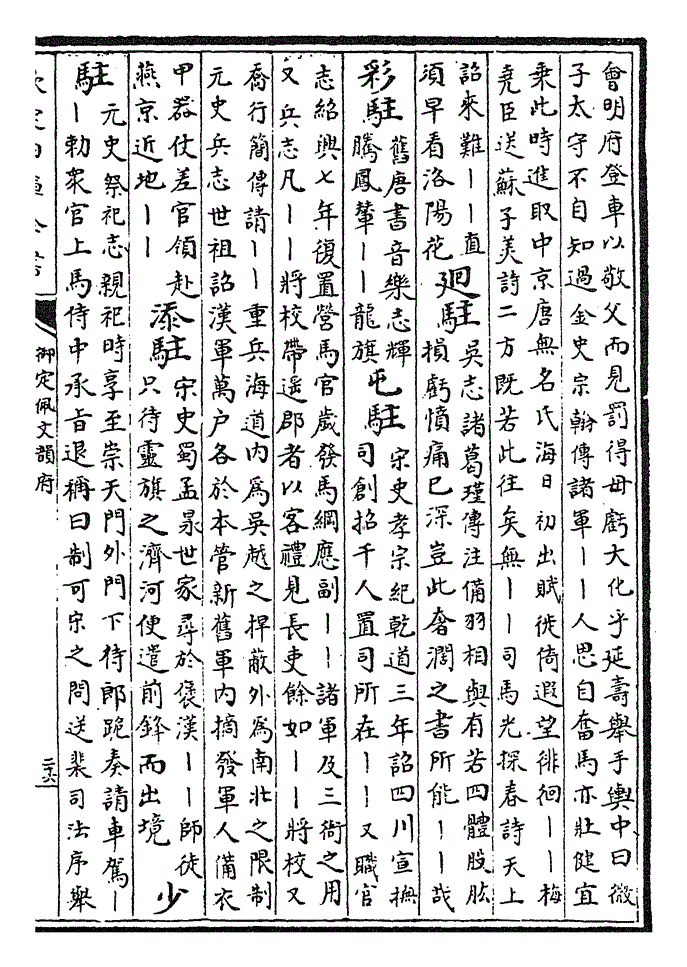 會明府登車以敬父而見罰得毋虧大化乎延壽舉手輿中曰微
子太守不自知過金史宗翰傳諸軍丨丨人思自奮馬亦壯健宜
乘此時進取中京唐無名氏海日初出賦徙倚遐望徘徊丨丨梅
堯臣送蘇子美詩二方既若此往矣無丨丨司馬光探春詩天上
詔來難丨丨直
須早看洛陽花
迴駐
吳志諸葛瑾傳注備羽相與有若四體股肱
損虧憤痛已深豈此奢濶之書所能丨丨哉
彩駐
舊唐書音樂志輝
騰鳳輦丨丨龍旗
屯駐
宋史孝宗紀乾道三年詔四川宣撫
司創招千人置司所在丨丨又職官
志紹興七年復置營馬官歲發馬綱應副丨丨諸軍及三衙之用
又兵志凡丨丨將校帶遥郡者以客禮見長吏餘如丨丨將校又
喬行簡傳請丨丨重兵海道内為吳越之捍蔽外為南北之限制
元史兵志世祖詔漢軍萬户各於本管新舊軍内摘發軍人備衣
甲器仗差官領赴
燕京近地丨丨
添駐
宋史蜀孟昶世家尋於褒漢丨丨師徒
只待靈旗之濟河便遣前鋒而出境
少
駐
元史祭祀志親祀時享至崇天門外門下待郎跪奏請車駕丨
丨勅衆官上馬侍中承旨退稱曰制可宋之問送裴司法序舉
御定佩文韻府
二六